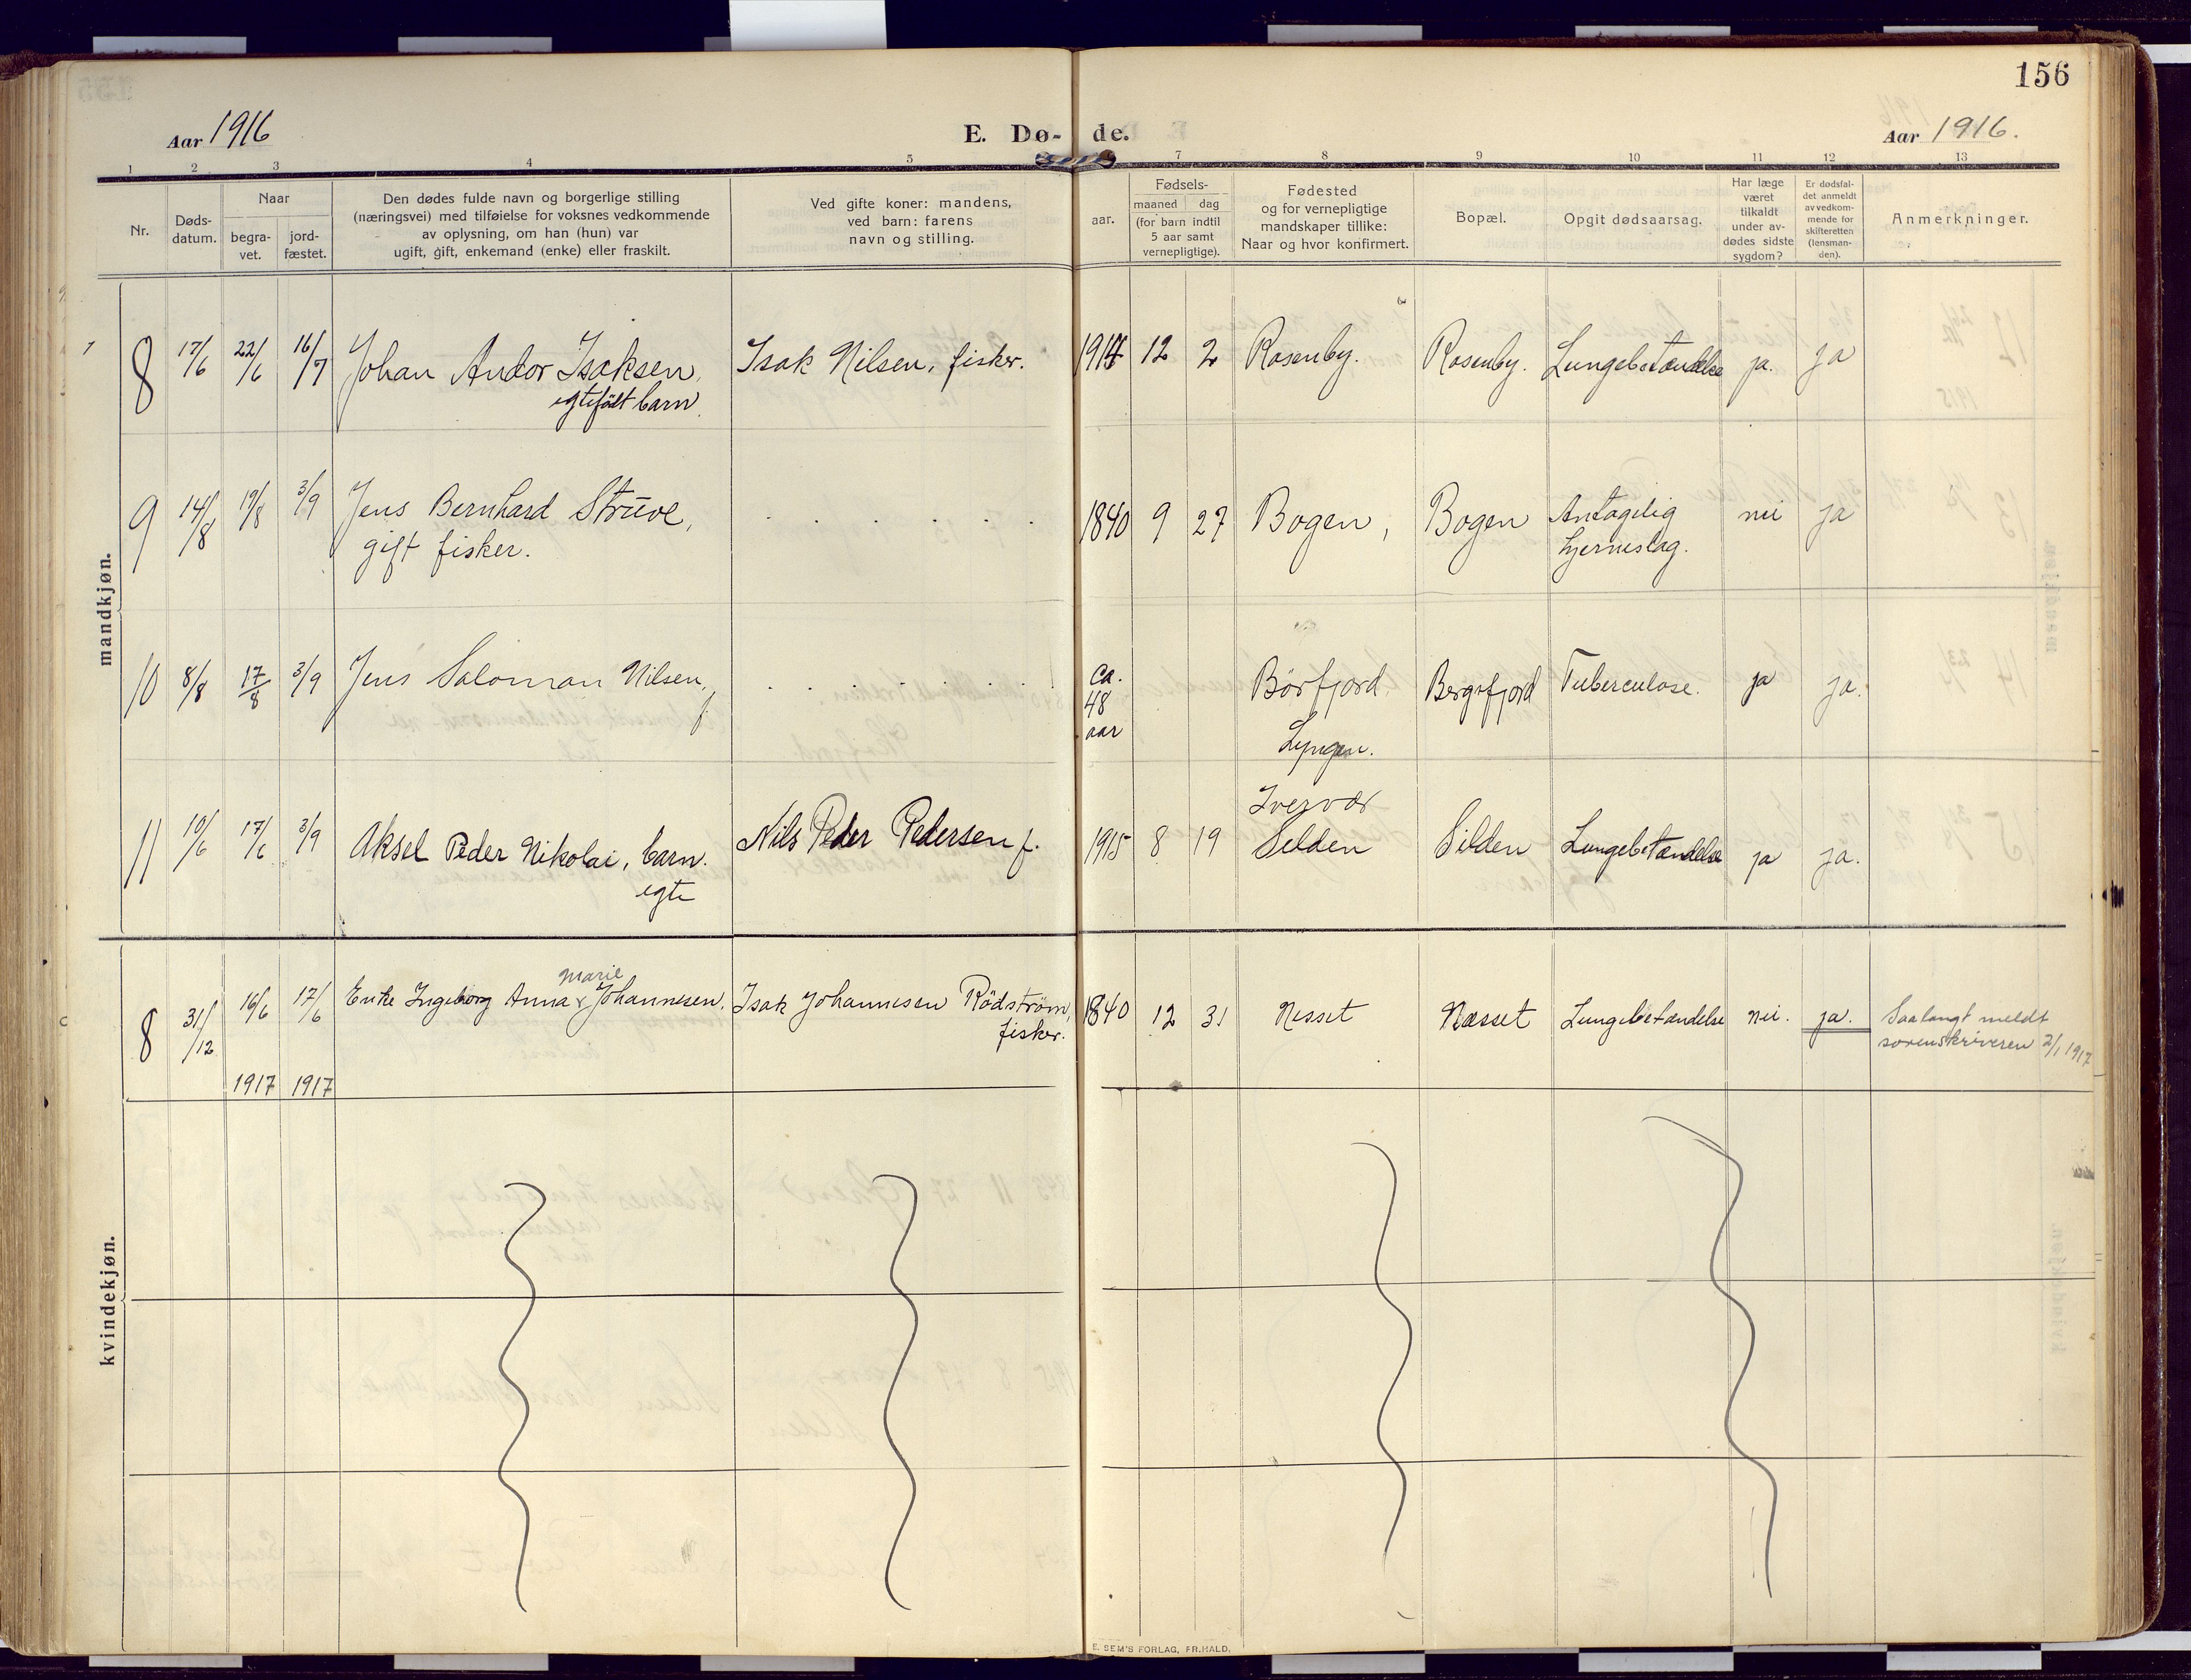 156
Aar 1916
E. Dø- de.
Aar 1916.
1 2 3 4 5 7 8 9 10 11 12 13
Nr.
Døds-
datum.
Naar
begra-
vet.
jord-
fæstet.
Den dødes fulde navn og borgerlige stilling
(næringsvei) med tilføielse for voksnes vedkommende
av oplysning, om han (hun) var
ugift, gift, enkemand (enke) eller fraskilt.
Ved gifte koner: mandens,
ved barn: farens
navn og stilling.
aar.
Fødsels-
maaned dag
(for barn indtil
5 aar samt
vernepligtige).
Fødested
og for vernepligtige
mandskaper tillike:
Naar og hvor konfirmert.
Bopæl.
Opgit dødsaarsag.
Har læge
været
tilkaldt
under av-
dødes sidste
sygdom?
Er dødsfal-
det anmeldt
av vedkom-
mende for
skifteretten
(lensman-
den).
Anmerkninger.
mandkjøn.
8 17/6 22/6 16/7 Johan Andor Isaksen, Isak Nilsen, fisker. 1914 12 2 Rosenby. Rosenby. Lungebetændelse ja. ja
egtefödt barn.
9 14/8 19/8 3/9 Jens Bernhard Strüve, 1840 9 27 Bogen, Bogen Antagelig nei ja
gift fisker. hjerneslag.
10 8/8 17/8 3/9 Jens Saloman Nilsen, f ca. Börfjord. Bergsfjord Tuberculose. ja ja.
48
aar Lyngen.
Iversvær
11 10/6 17/6 3/9 Aksel Peder Nikolai, barn. Nils Peder Pedersen f. 1915 8 19 Selden Silden Lungebetændelse ja ja.
egte
kvindekjøn.
Marie
8 31/12 16/6 17/6 Enke Ingeborg Anna Johannesen. Isak Johannesen Rödström, 1840 12 31 Nesset Næsset Lungebetændelse nei. ja. Saalangt meldt
fisker. sorenskriveren 2/1 1917
1917 1917
E. SEM'S FORLAG, FR.HALD.